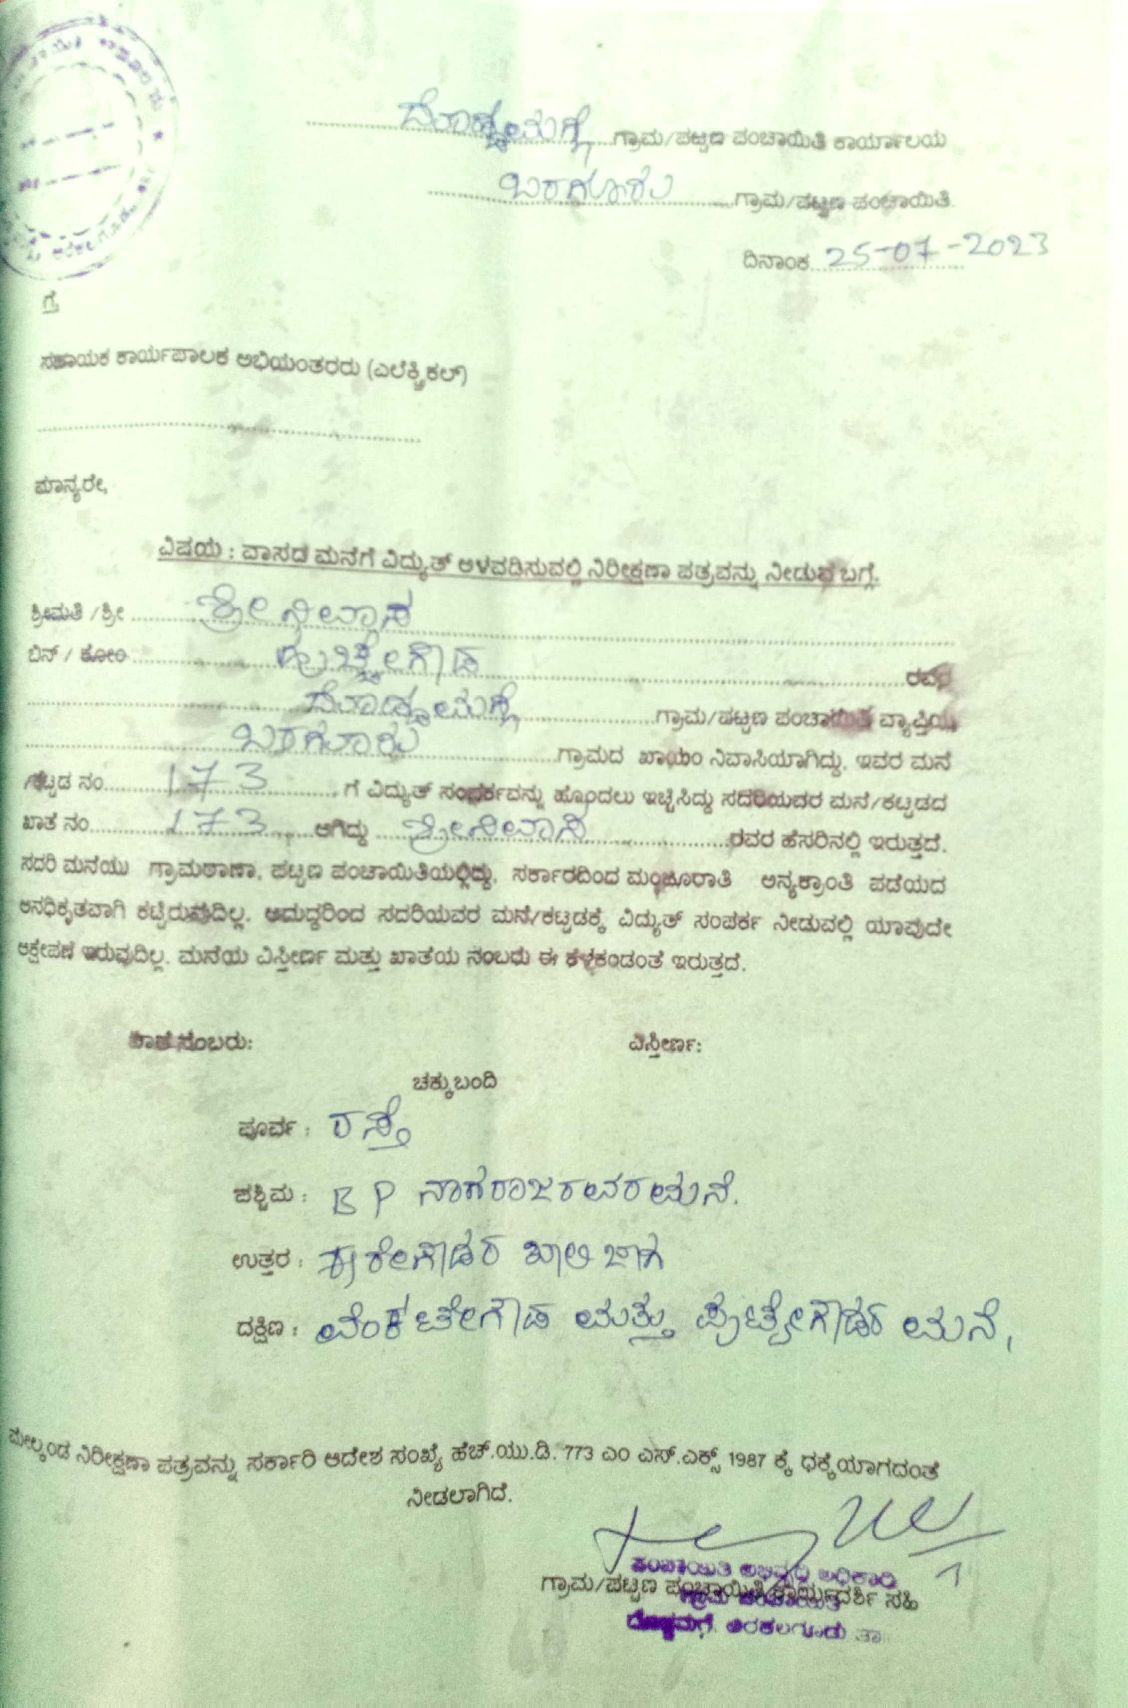 ದೊಡ್ಡಮಗ್ಗೆ ಗ್ರಾಮ/ಪಟ್ಟಣ ಪಂಚಾಯಿತಿ ಕಾರ್ಯಾಲಯ
ಬರಗೂರು ಗ್ರಾಮ/ಪಟ್ಟಣ ಪಂಚಾಯಿತಿ.
ದಿನಾಂಕ 25-07-2023
ಗೆ,
ಸಹಾಯಕ ಕಾರ್ಯಪಾಲಕ ಅಭಿಯಂತರರು (ಎಲೆಕ್ಟ್ರಿಕಲ್)
ಮಾನ್ಯರೇ,
ವಿಷಯ : ವಾಸದ ಮನೆಗೆ ವಿದ್ಯುತ್ ಅಳವಡಿಸುವಲ್ಲಿ ನಿರೀಕ್ಷಣಾ ಪತ್ರವನ್ನು ನೀಡುವ ಬಗ್ಗೆ.
ಶ್ರೀಮತಿ /ಶ್ರೀ ಶ್ರೀನಿವಾಸ
ಬಿನ್ / ಕೋಂ ಹುಚ್ಚೇಗೌಡ ರವರ
ದೊಡ್ಡಮಗ್ಗೆ ಗ್ರಾಮ/ಪಟ್ಟಣ ಪಂಚಾಯಿತಿ ವ್ಯಾಪ್ತಿಯ
ಬರಗೂರು ಗ್ರಾಮದ ಖಾಯಂ ನಿವಾಸಿಯಾಗಿದ್ದು, ಇವರ ಮನೆ
/ಕಟ್ಟಡ ನಂ 173 ಗೆ ವಿದ್ಯುತ್ ಸಂಪರ್ಕವನ್ನು ಹೊಂದಲು ಇಚ್ಛಿಸಿದ್ದು ಸದರಿಯವರ ಮನೆ/ಕಟ್ಟಡದ
ಖಾತೆ ನಂ 173 ಆಗಿದ್ದು ಶ್ರೀನಿವಾಸ ರವರ ಹೆಸರಿನಲ್ಲಿ ಇರುತ್ತದೆ.
ಸದರಿ ಮನೆಯು ಗ್ರಾಮಠಾಣಾ, ಪಟ್ಟಣ ಪಂಚಾಯಿತಿಯಲ್ಲಿದ್ದು, ಸರ್ಕಾರದಿಂದ ಮಂಜೂರಾತಿ ಅನ್ಯಕ್ರಾಂತಿ ಪಡೆಯದ
ಅನಧಿಕೃತವಾಗಿ ಕಟ್ಟಿರುವುದಿಲ್ಲ. ಆದುದ್ದರಿಂದ ಸದರಿಯವರ ಮನೆ/ಕಟ್ಟಡಕ್ಕೆ ವಿದ್ಯುತ್ ಸಂಪರ್ಕ ನೀಡುವಲ್ಲಿ ಯಾವುದೇ
ಆಕ್ಷೇಪಣೆ ಇರುವುದಿಲ್ಲ. ಮನೆಯ ವಿಸ್ತೀರ್ಣ ಮತ್ತು ಖಾತೆಯ ನಂಬರು ಈ ಕೆಳಕಂಡಂತೆ ಇರುತ್ತದೆ.
ಖಾತೆ ನಂಬರು: ವಿಸ್ತೀರ್ಣ:
ಚಕ್ಕುಬಂದಿ
ಪೂರ್ವ : ರಸ್ತೆ
ಪಶ್ಚಿಮ : B P ನಾಗರಾಜರವರ ಮನೆ.
ಉತ್ತರ : ಖಾಲಿ ಜಾಗ
ದಕ್ಷಿಣ : ವೆಂಕಟೇಗೌಡ ಮತ್ತು ಪುಟ್ಟೇಗೌಡರ ಮನೆ,
ಮೇಲ್ಕಂಡ ನಿರೀಕ್ಷಣಾ ಪತ್ರವನ್ನು ಸರ್ಕಾರಿ ಆದೇಶ ಸಂಖ್ಯೆ ಹೆಚ್.ಯು.ಡಿ. 773 ಎಂ ಎಸ್.ಎಕ್ಸ್ 1987 ಕ್ಕೆ ಧಕ್ಕೆಯಾಗದಂತೆ
ನೀಡಲಾಗಿದೆ.
ಪಂಚಾಯಿತಿ ಅಭಿವೃದ್ಧಿ ಅಧಿಕಾರಿ
ಗ್ರಾಮ/ಪಟ್ಟಣ ಪಂಚಾಯಿತಿ ಕಾರ್ಯದರ್ಶಿ ಸಹಿ
ಗ್ರಾಮ ಪಂಚಾಯಿತಿ
ದೊಡ್ಡಮಗ್ಗೆ, ಅರಕಲಗೂಡು ತಾ